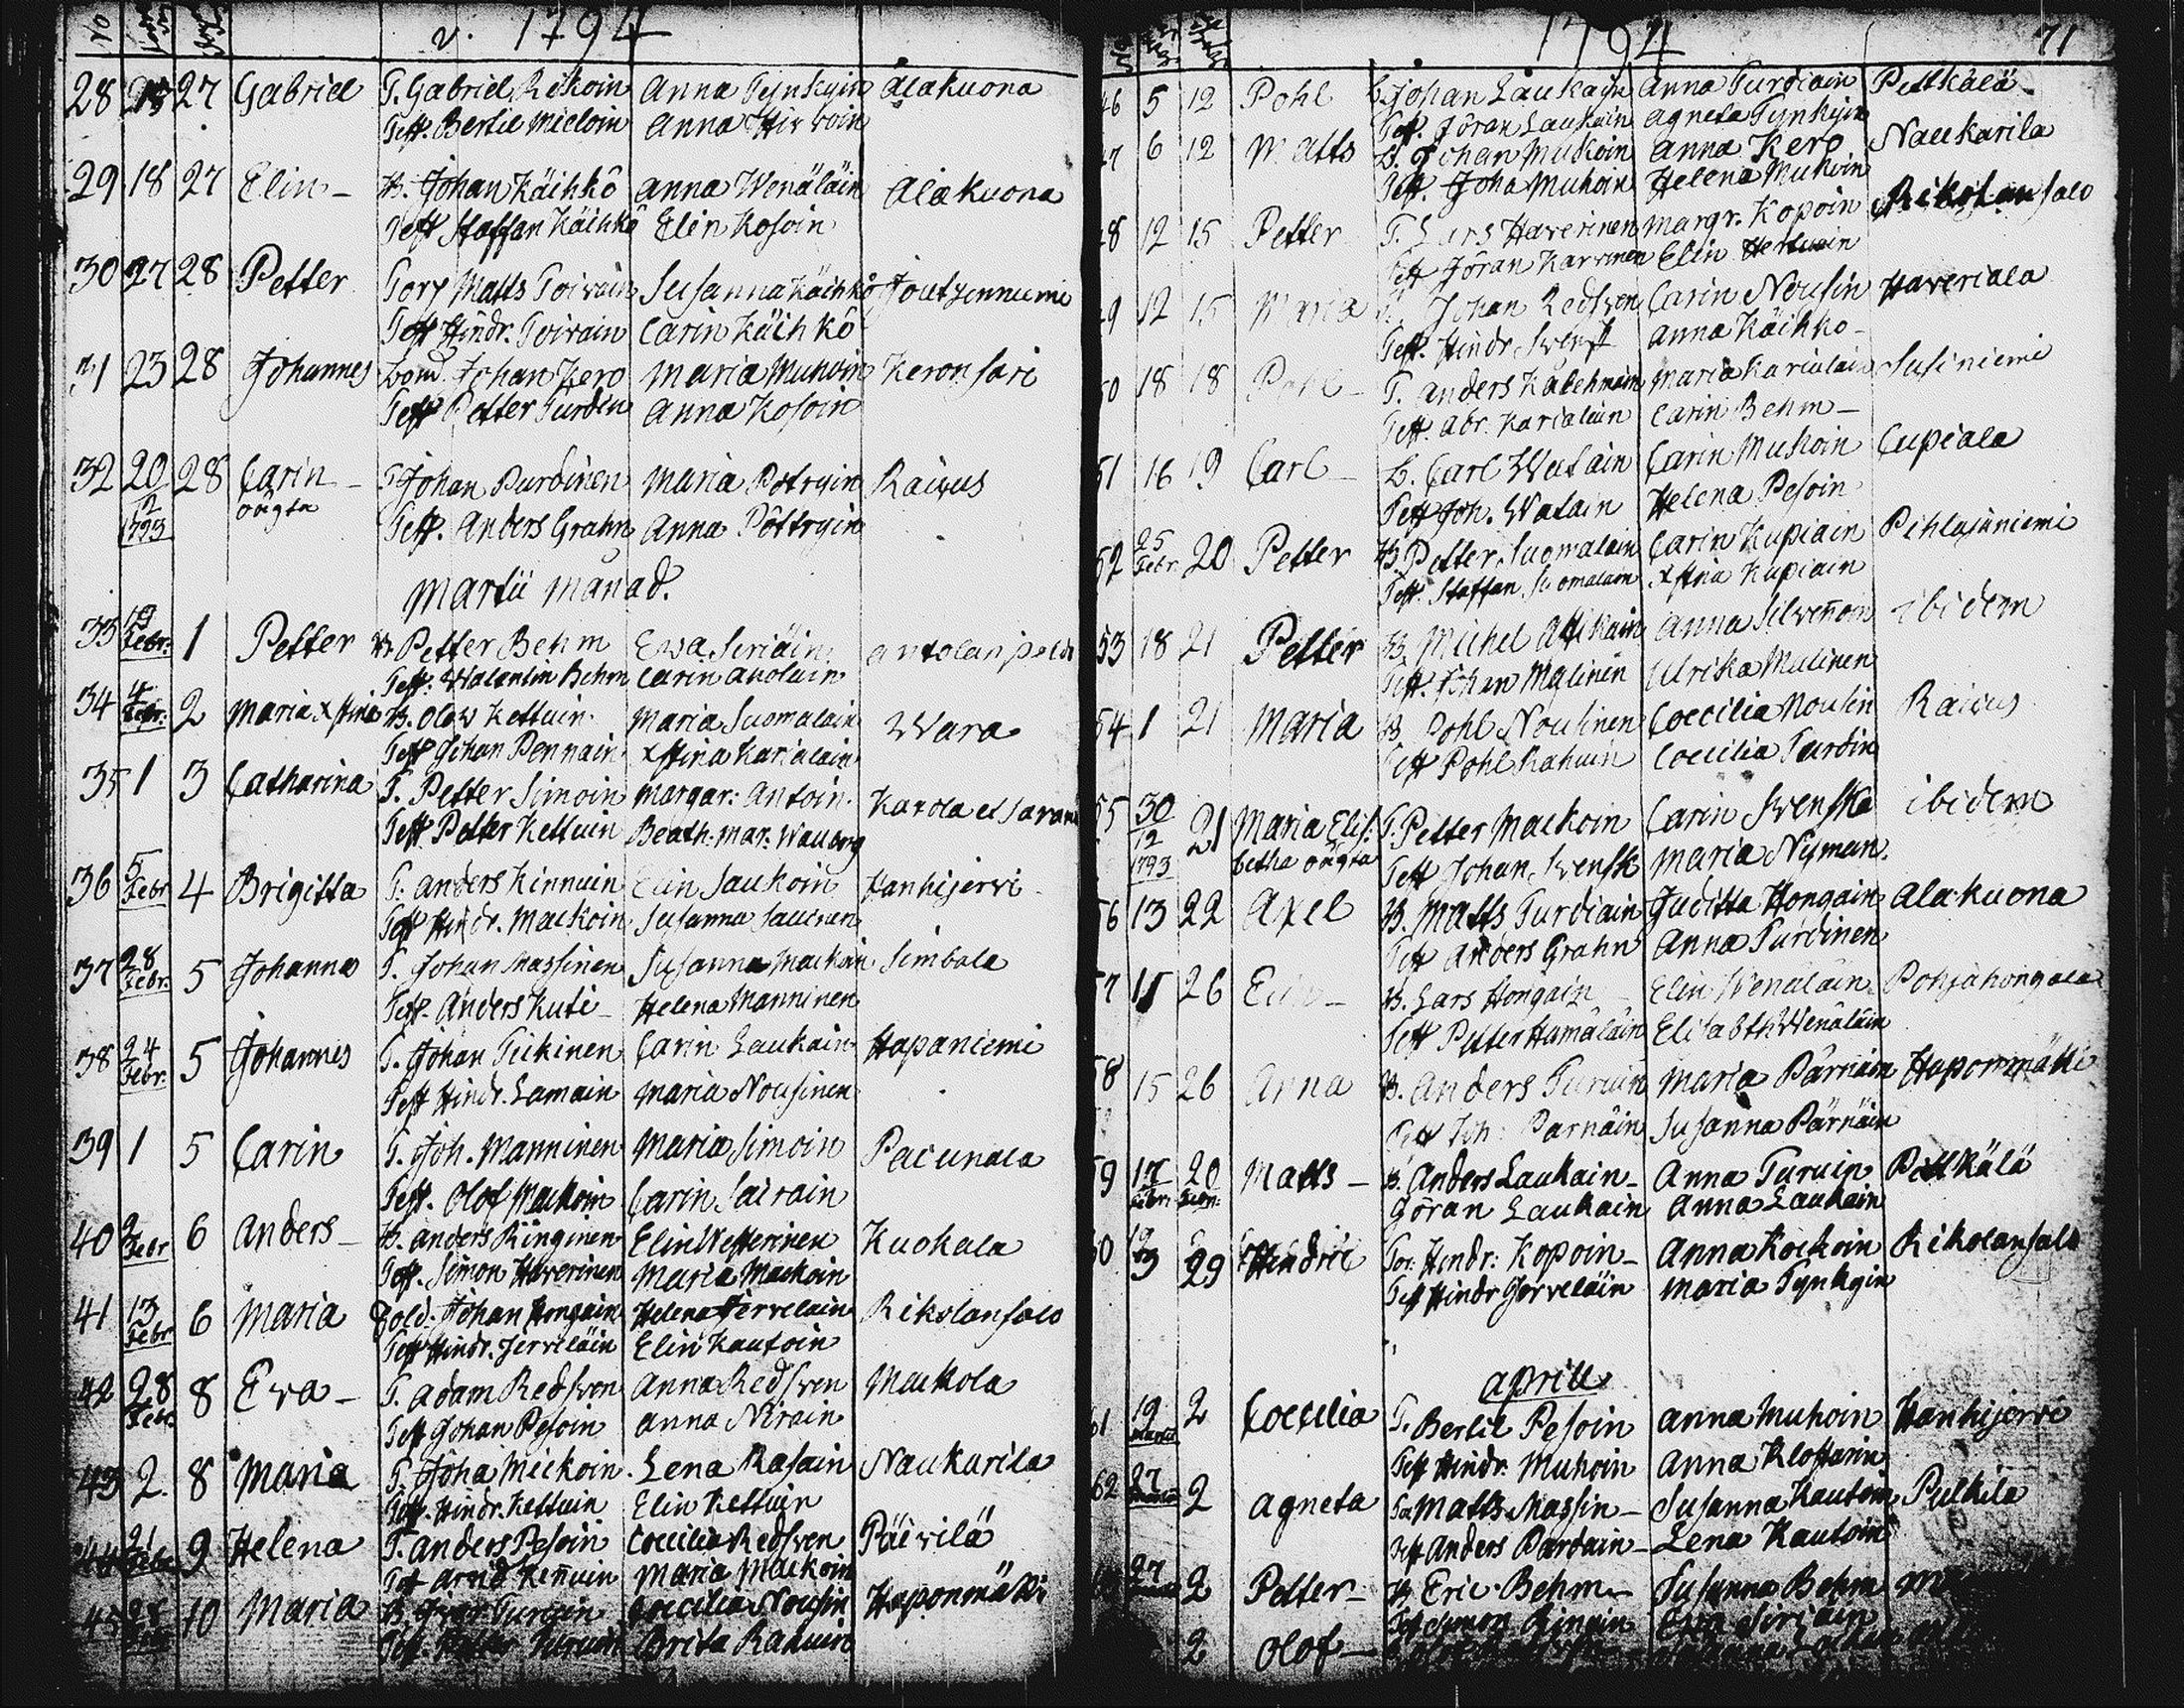 v. 1794
28 27 Gabriel T. Gabriel Rikoin Anna Tynkyin Alakuona
Test. Bertil Mieloin Anna Hirvoin
29 18 27 Elin - B. Johan Käihkö Anna Wenäläin Alakuona
Test Staffan Käihkö Elin Kosoin
30 27 28 Petter Torp Matts Toivain Susanna Käihkö Joutzenniemi
Test Hindr. Toivain Carin Käihkö
31 23 28 Johannes Bond. Johan Kero Maria Muhoin Keronsari
Test Petter Turdin Anna Kosoin
32 20 28 Carin - T Johan Purdinen Maria Pötryin Raivus
12 1793 oägta Test. Anders Grahn Anna Pöttryin
Martii Månad.
33 19 Febr: 1 Petter B Petter Behm Ewa Siriäin
Test. Walentin Behm Carin Auolain
34 4 Febr: 2 Maria Xstina B. Olow Kettuin Maria Suomalain Wara
Test Johan Pennain Xstina Karialain
35 1 3 Catharina T. Petter Simoin Margar: Antoin Karola et Savan
Test Petter Kettuin Beath: Mar: Walborg
36 5 Febr 4 Brigitta T. Anders Kinnuin Elin Saukoin Hanhijervi
Test Hindr. Mackoin Susanna
37 28 Febr: 5 Johanna T. Johan Massinen Susanna Mackoin Simbala
Test. Anders Kuti - Helena Manninen
38 24 Febr: 5 Johannes T. Johan Tiikinen Carin Laukain Hapaniemi
Test Hindr. Lamain Maria Nousinen
39 1 5 Carin T. Joh. Manninen Maria Simoin
Test. Olof Mackoin Carin Sairain
40 2 Febr 6 Anders - B. Anders Ringinen Elin Westerinen Kuokala
Test. Simon Haverinen Maria Mackoin
41 13 Febr 6 Maria Sold. Johan Hongain Helena Jervelain Rikolansalo
Test Hindr. Jerveläin Elin Kautoin
42 28 Febr 8 Eva - T. Adam Redsven Anna Redsven Mackola
Test Johan Pesoin Anna Nirain
43 2. 8 Maria T. Joha Mickoin Lena Rasain Naukarila
Test. Hindr. Kettuin Elin Kettuin
44 21 Febr 9 Helena T. Anders Pesoin Coecilia Redsven Päivilä
Test Arvid Kennuin Maria Mackoin
45 28 10 Maria B. Turuin Coecilia Nousin Haponmäki
Test. Petter Brita Rahuin
1794 71
46 5 12 Pohl B. Johan Laukain Anna Turdiain Pellkälä
Test. Jöran Laukain Agneta Tynkyin
47 6 12 Matts B. Johan Mukoin Anna Kero Naukarila
Test. Joha Muhoin Helena Muhoin
48 12 15 Petter T. Lars Haverinen Margr. Kopoin Rikolansalo
Test Jöran Karvinen Elin Hertuain
49 12 15 Maria T. Johan Redsven Carin Nousin Haveriala
Test. Hindr Svensk Anna Käihkö -
50 18 18 Pohl - T. Anders Maria Karialain Susiniemi
Test. Abr. Karialain Carin Behm -
51 16 19 Carl - B. Carl Watain Carin Muhoin Cupiala
Test Joh. Watain Helena Pesoin
52 25 Febr. 20 Petter B. Petter Suomalain Carin Kupiain Pihlajaniemi
Test. Staffan Suomalain Xstina Kupiain
53 18 21 Petter B. Michel Attikain Anna Silvennoin ibidem
Test. Johan Malinen Ulrika Malinen
54 1 21 Maria B Pohl Nousinen Coecilia Nousin Raivus
Test Pohl Rahuin Coecilia Turdin
55 30 12 1793 21 Maria Elis: T. Petter Mackoin Carin Svenske ibidem
betha oägta Test Johan Svensk Maria Nyman.
56 13 22 Axel B. Matts Turdiain Juditta Hongain Alakuona
Test Anders Grahn Anna Turdinen
57 15 26 Elin - B. Lars Hongain - Elin Wenäläin Pohjahongala
Test Petter Hämäläin Elisabth Wenäläin
58 15 26 Anna B. Anders Turuin Maria Pärnäin Haponmäki
Test Joh: Pärnäin Susanna Pärnäin
59 17 Febr. 20 Febr: Matts - B. Anders Laukain - Anna Turuin Pellkälä
Göran Laukain Anna Laukain
60 29 Hindric Tor. Hindr: Kopoin - Anna Kockoin Rikolansalo
Test Hindr Jerveläin Maria Tynkyin
Aprill
61 19 Martii 2 Coecilia T. Bertil Pesoin Anna Muhoin Hanhijervi
Test Hindr. Muhoin Anna Klostarin
62 27 Martii 2 Agneta Tor Matts Massin - Susanna Kautoin Pulkila
Test Anders Pardain - Lena Kautoin
27 2 Petter - B. Eric Behm - Susanna Behm
Test Simon Ringin Ewa Siriäin
2 Olof -